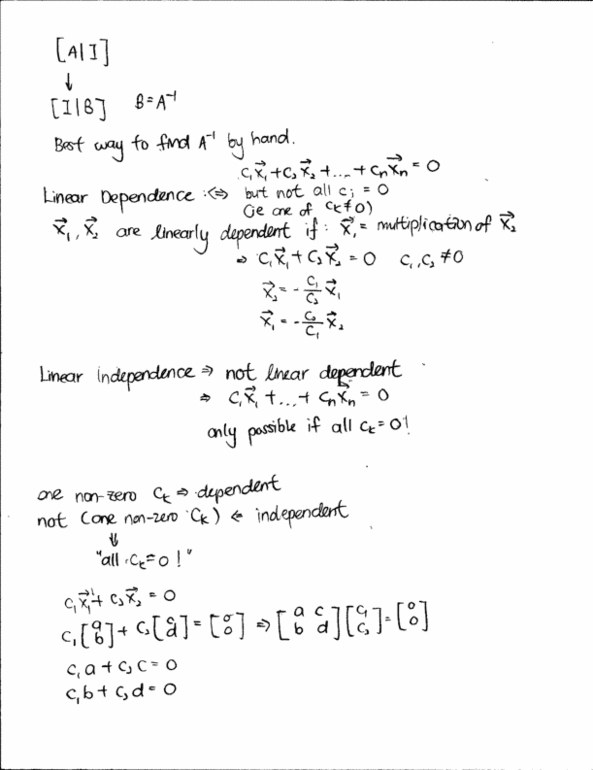 [A|I]
↓
[I|B] B=A⁻¹
Best way to find A⁻¹ by hand.
c₁x⃗₁+c₂x⃗₂+...+cₙx⃗ₙ=0
Linear Dependence :⇔ but not all cᵢ = 0
(ie one of cₖ≠0)
x⃗₁, x⃗₂ are linearly dependent if: x⃗₁= multiplication of x⃗₂
⇒ c₁x⃗₁+c₂x⃗₂=0 c₁,c₂≠0
x⃗₂=-c₁/c₂ x⃗₁
x⃗₁=-c₂/c₁ x⃗₂
Linear independence ⇒ not linear dependent
⇒ c₁x⃗₁+...+cₙx⃗ₙ=0
only possible if all cₖ=0!
one non-zero cₖ ⇒ dependent
not (one non-zero cₖ) ⇐ independent
⇓
"all cₖ=0!"
c₁x⃗₁+c₂x⃗₂=0
c₁[a b]+c₂[c d]=[0 0] ⇒ [a c b d][c₁ c₂]=[0 0]
c₁a+c₂c=0
c₁b+c₂d=0